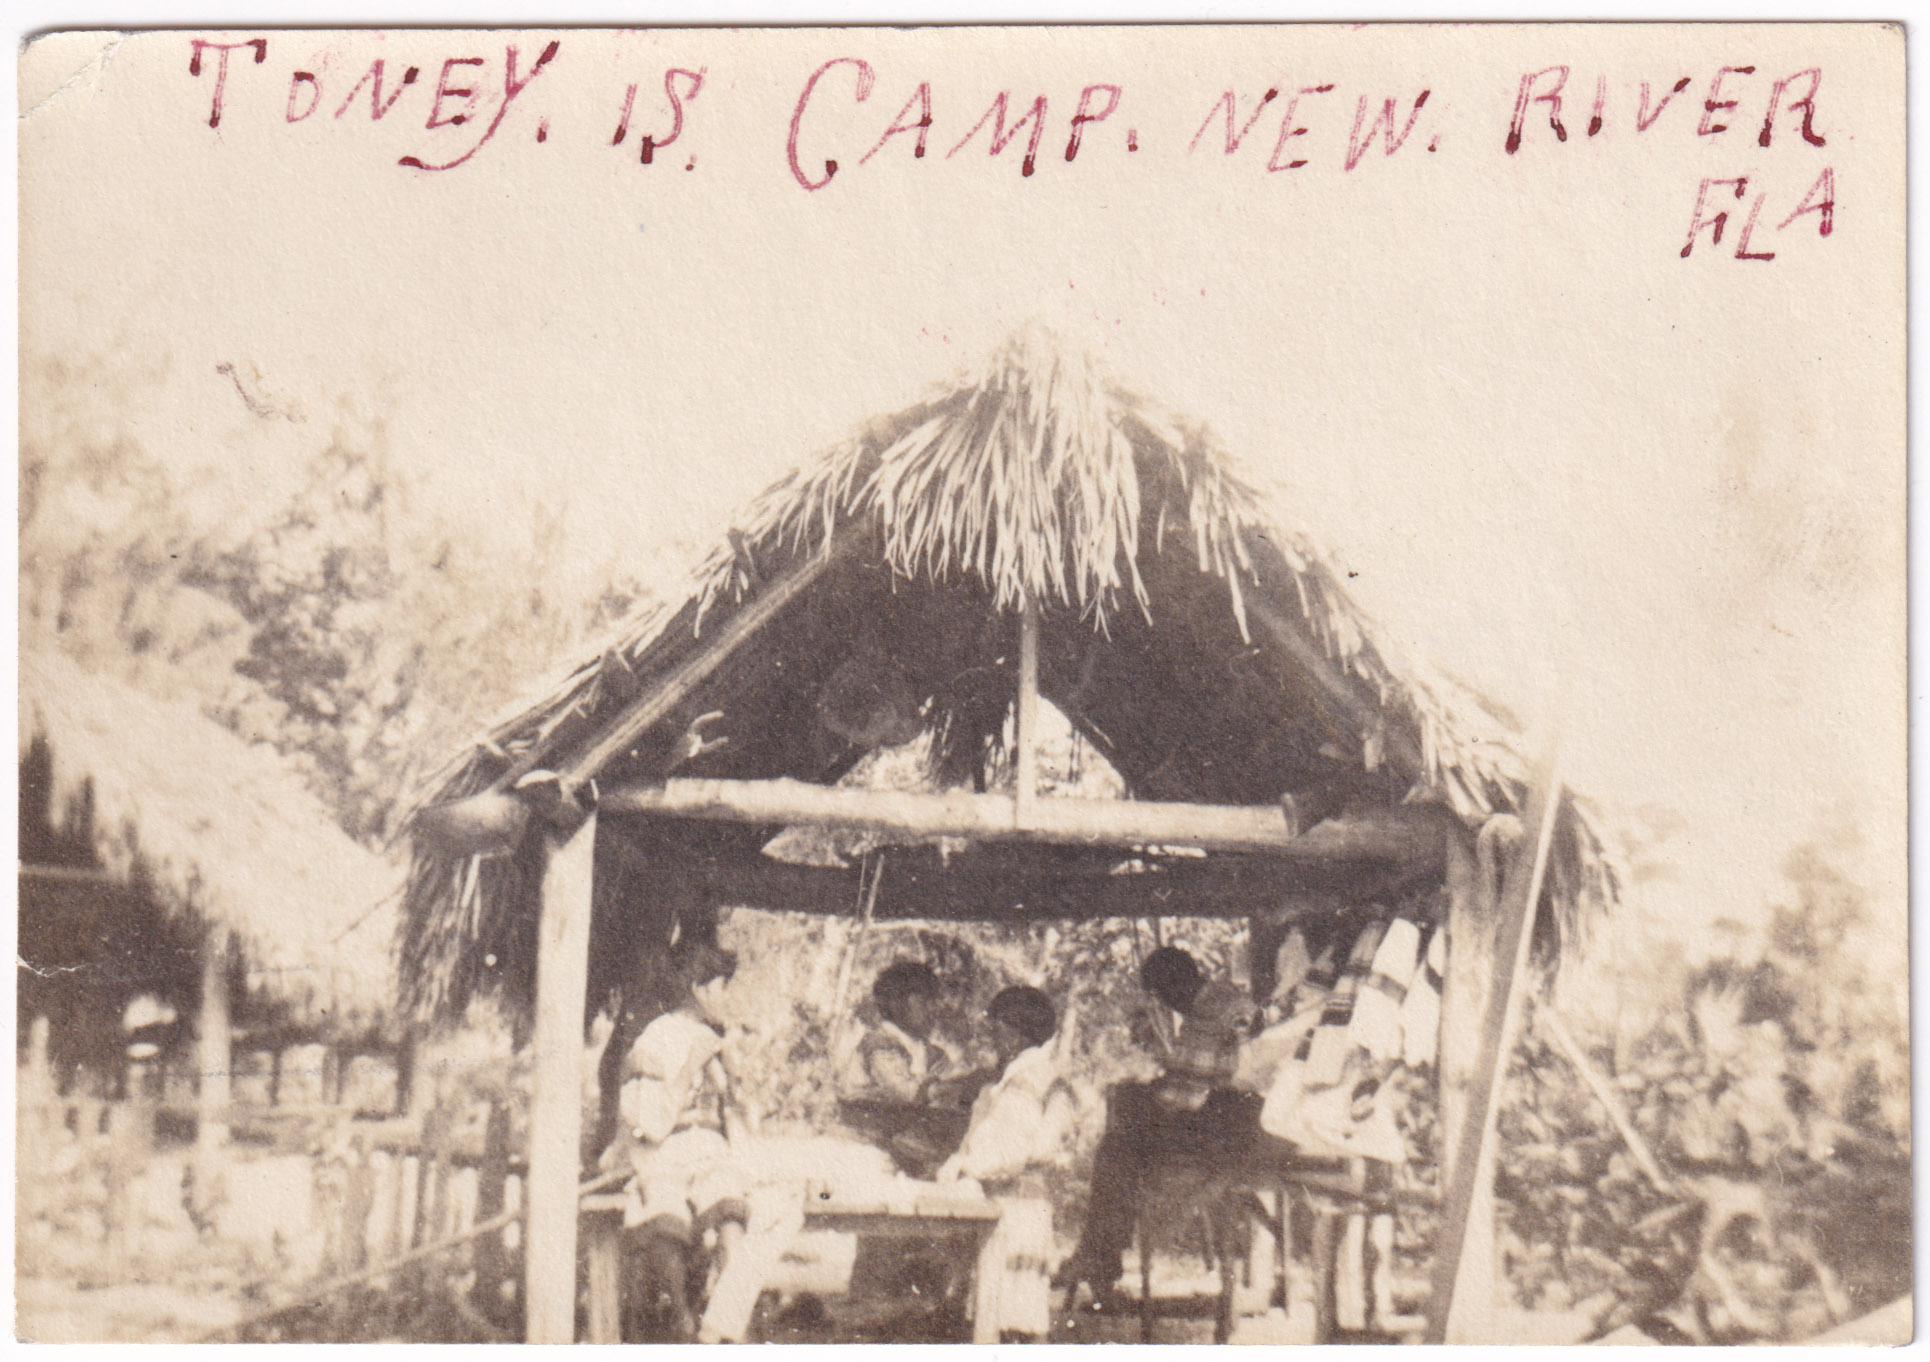 TONEY. IS. CAMP. NEW. RIVER
FLA